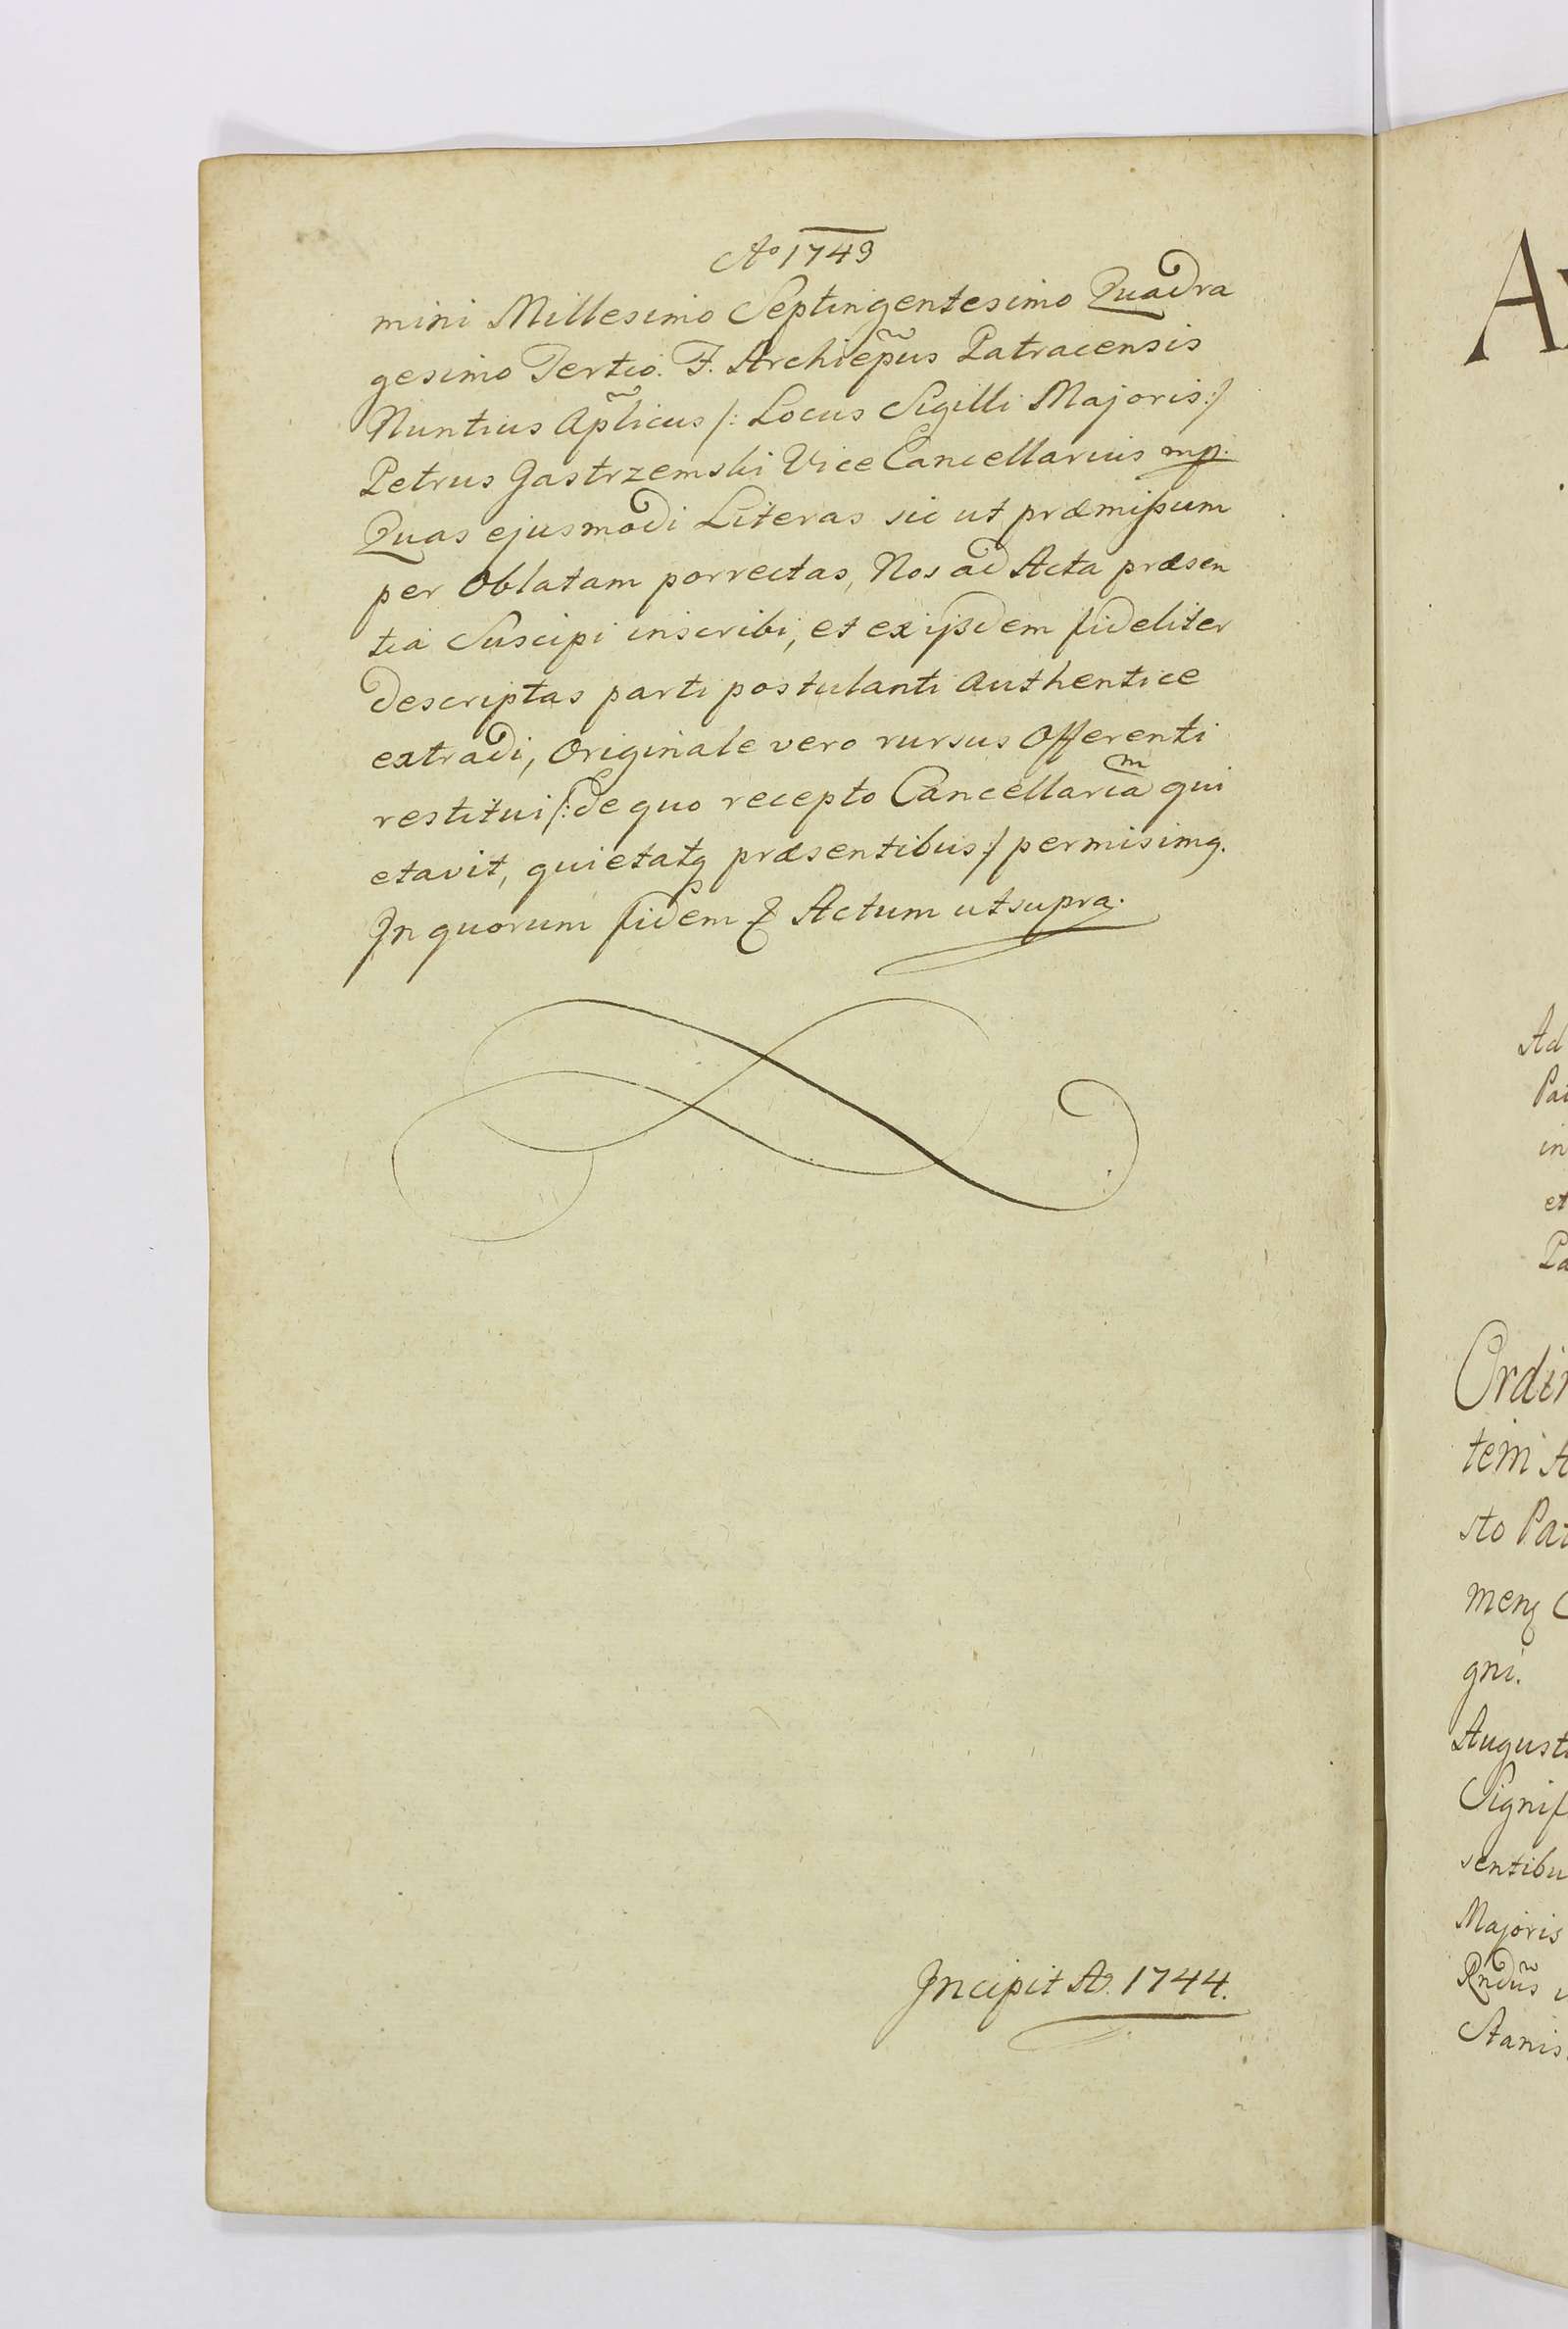 Ao 1743
mini Millesimo Septingentesimo Quadra
gesimo Tertio. F. Archiep̃us Patracensis
Nuntius Ap̃licus /: Locus Sigilli Majoris :/
Petrus Gastrzemski Vice Cancellarius mp.
Quas ejusmodi Literas sic ut præmissum
per Oblatam porrectas, Nos ad Acta præsen
tia Suscipi inscribi, et ex ijsdem fideliter
descriptas parti postulanti Authentice
extradi, Originale vero rursus Offerenti
restitui /: de quo recepto Cancellariam qui
etavit, quietatq præsentibus :/ permisimq.
In quorum fidem & Actum ut supra.
Incipit Ao. 1744.
A
Ad
Pa
in
et
Pa
Ordin
tem A
sto Pat
menq C
gni.
August
Signif
sentibu
Majoris
Rnd̃us
Stanis